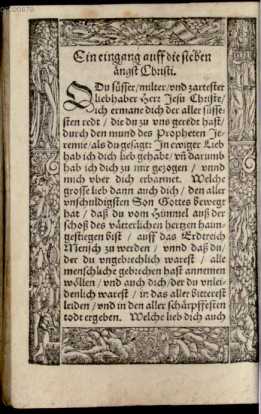 Ein eingang auff die sieben
ångst Christi.
O Du süsser/milter/vnd zartester
liebhaber Herr Jesu Christe/
ich ermane dich der aller süsse-
sten redt / die du zu vns geredt hast/
durch den mund des Propheten Je-
remie/als du gesagt: In ewiger Lieb
hab ich dich lieb gehabt/ vñ darumb
hab ich dich zu mir gezogen / vnnd
mich vber dich erbarmet. Welche
grosse lieb dann auch dich / den aller
vnschuldigsten Son Gottes beweget
hat / daß du vom Hümmel auß der
schoß des vätterlichen hertzen haun-
gestiegen bist / auff das Erdtreich
Mensch zu werden / vnnd daß du/
der du vngebrechlich warest / alle
menschliche gebrechen hast annemen
wöllen / vnd auch dich/der du vnlei-
denlich warest / in das aller bitterest
leiden / vnd in den aller schärpffesten
todt ergeben. Welche lieb dich auch